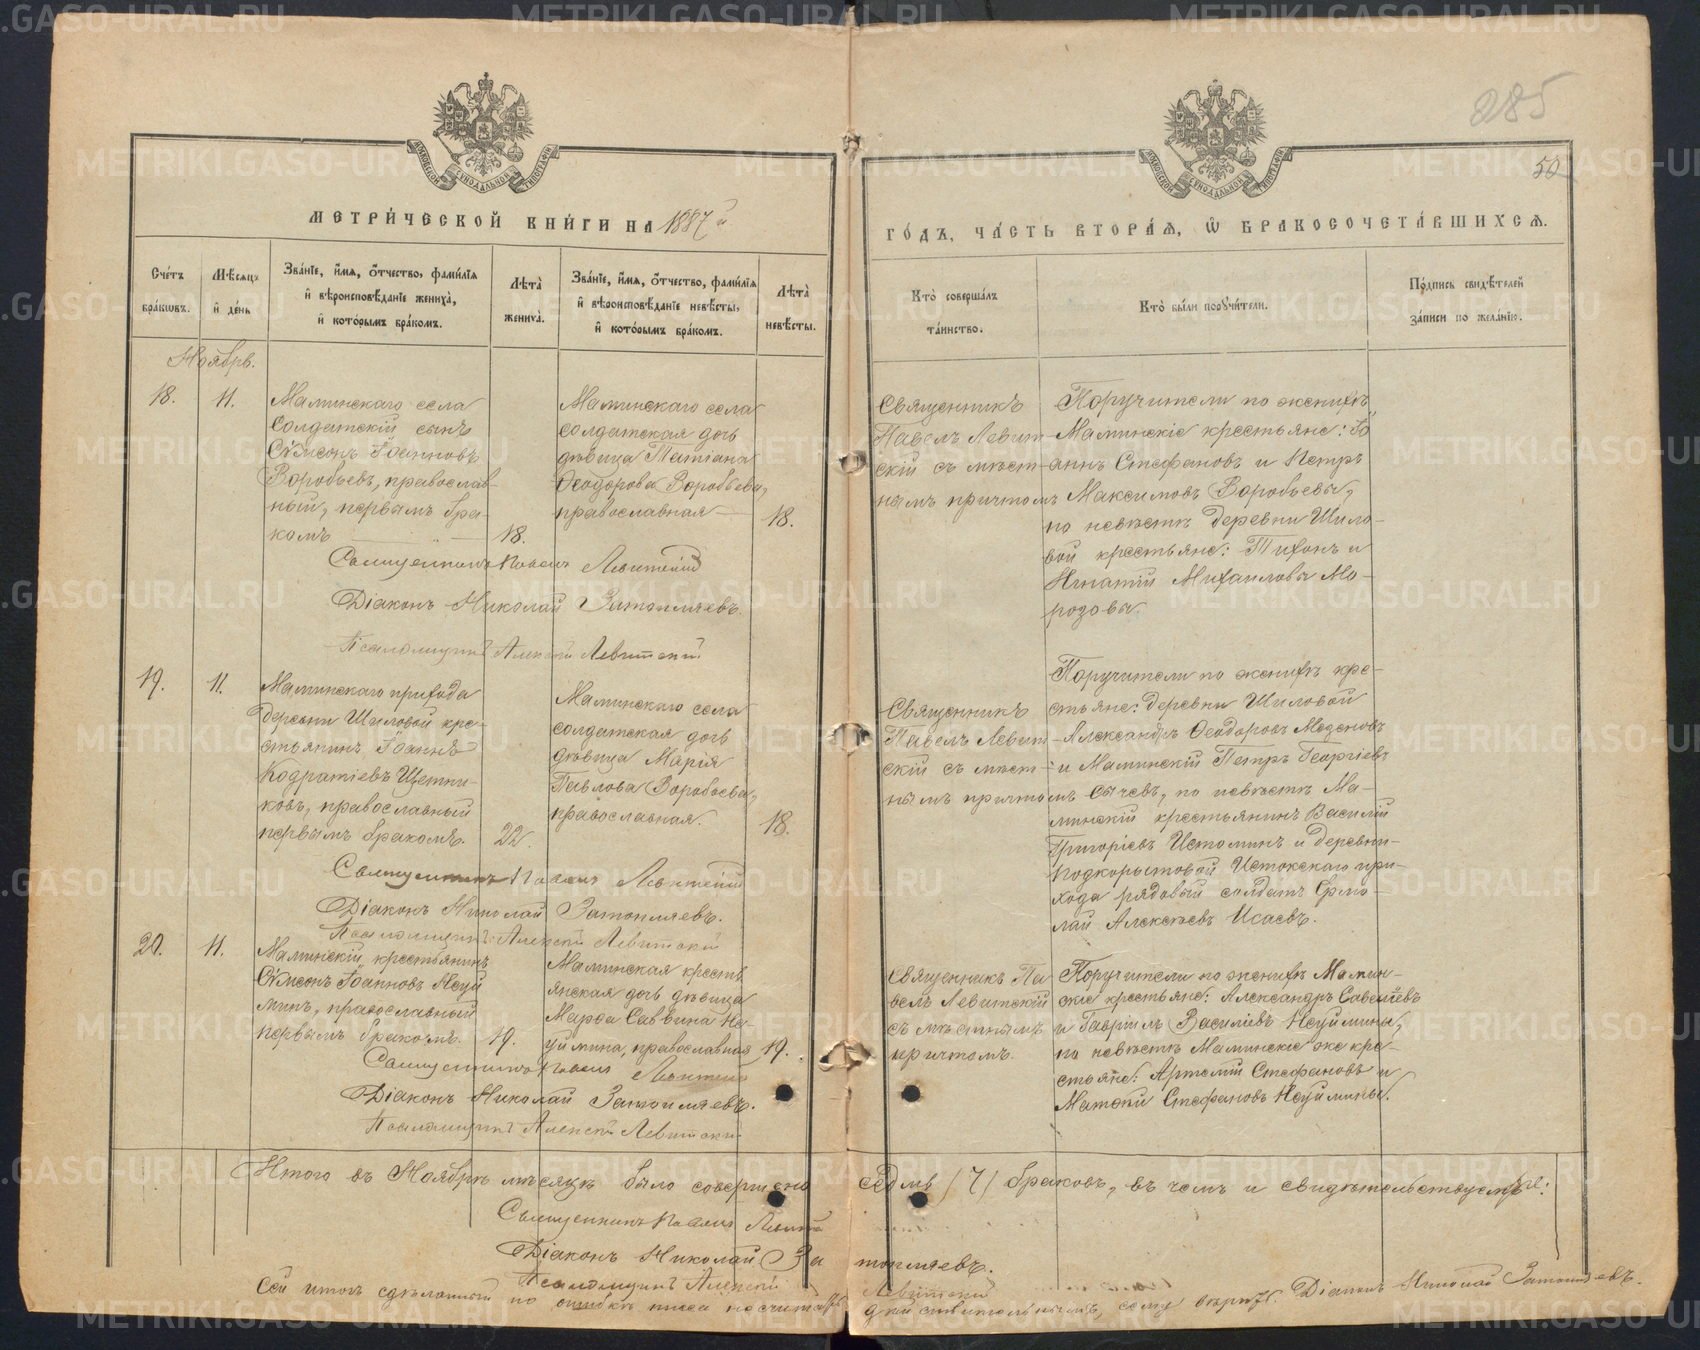 METRIKI.GASO-URAL.RU
285
50
МЕТРИ́ЧЕСКОЙ КНИ́ГИ НА 1887й
ГО́ДЪ, ЧА́СТЬ ВТОРА́Ѧ, Ѡ҆ БРАКОСОЧЕТА́ВШИХСѦ.
Сче́тъ бра́кѡвъ.
Мѣ́сѧцъ и҆ де́нь
Зва́нїе, и҆́мѧ, ѻ҆́тчество, фами́лїѧ и҆ вѣроисповѣ́данїе жениха̀, и҆ кото́рымъ бра́комъ.
Лѣта̀ жениха̀.
Зва́нїе, и҆́мѧ, ѻ҆́тчество, фами́лїѧ и҆ вѣроисповѣ́данїе невѣ́сты, и҆ кото́рымъ бра́комъ.
Лѣта̀ невѣ́сты.
Кто̀ соверша́лъ та́инство.
Кто̀ бы́ли порꙋчи́тели.
По́дпись свидѣ́телей за́писи по жела́нїю.
Ноябрь.
18.
11.
Маминскаго села
Солдатскій сынъ
Сѵмеонъ Іоанновъ
Воробьевъ, православ-
ный, первымъ бра-
комъ
18.
Маминскаго села
солдатская дочь
дѣвица Татіана
Ѳеодорова Воробьева,
православная
18.
Священникъ
Павелъ Левит-
скій съ мѣст-
нымъ причтомъ
Поручители по женихѣ
Маминскіе крестьяне: Іо
аннъ Стефановъ и Петръ
Максимовъ Воробьевы,
по невѣстѣ деревни Шило-
вой крестьяне: Тихонъ и
Игнатій Михаиловы Мо-
розовы.
Священникъ Павелъ Левитскій
Діаконъ Николай Затопляевъ.
Псаломщикъ Алексій Левитскій
19.
11.
Маминскаго прихода
деревни Шиловой кре-
стьянинъ Іоаннъ
Кодратіевъ Щетни-
ковъ, православный
первымъ бракомъ.
22.
Маминскаго села
солдатская дочь
дѣвица Марія
Павлова Воробьева,
православная.
18.
Священникъ
Павелъ Левит-
скій съ мѣст-
нымъ причтомъ
Поручители по женихѣ кре-
стьяне: деревни Шиловой
Александръ Ѳеодоровъ Меденовъ
и Маминскій Петръ Георгіевъ
Сычевъ, по невѣстѣ Ма-
минскій крестьянинъ Василій
Григоріевъ Истоминъ и деревни
Подкорытовой Истокскаго при-
хода рядовый солдатъ Ермо-
лай Алексѣевъ Исаевъ.
Священникъ Павелъ Левитскій
Діаконъ Николай Затопляевъ.
Псаломщикъ Алексій Левитскій
20.
11.
Маминскій крестьянинъ
Сѵмеонъ Іоанновъ Неуй
минъ, православный
первымъ бракомъ.
19.
Маминская кресть
янская дочь дѣвица
Марѳа Саввина Не-
уймина, православная
19.
Священникъ Па
велъ Левитскій
съ мѣстнымъ
причтомъ.
Поручители по женихѣ Мамин-
скіе крестьяне: Александръ Савеліевъ
и Гавріилъ Василіевъ Неуймины,
по невѣстѣ Маминскіе же кре-
стьяне: Артемій Стефановъ и
Матѳій Стефановъ Неуймины.
Священникъ Павелъ Левитскій
Діаконъ Николай Затопляевъ.
Псаломщикъ Алексій Левитскій
Итого въ Ноябрѣ мѣсяцѣ было совершено седмь (7) браковъ, въ чемъ и свидѣтельствуемъ:
Священникъ Павелъ Левитскій
Діаконъ Николай Затопляевъ.
Псаломщикъ Алексій Левитскій
Сей итогъ сдѣланный по ошибкѣ писца не считать дѣйствительнымъ, Діаконъ Николай Затопляевъ.